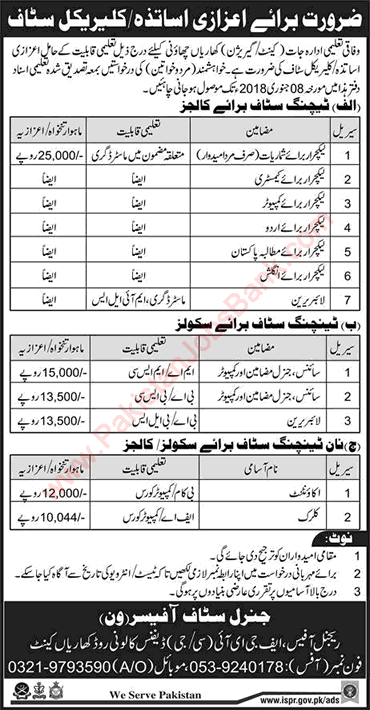 ضرورت برائے اعزازی اساتذہ/کلیریکل سٹاف
وفاقی تعلیمی ادارہ جات (کینٹ/گیریژن) کھاریاں چھاؤنی کیلئے درج ذیل تعلیمی قابلیت کے حامل اعزازی
اساتذہ/کلیریکل سٹاف کی ضرورت ہے۔ خواہشمند (مرد و خواتین) کی درخواستیں بمعہ تصدیق شدہ تعلیمی اسناد
دفتر ہذا میں مورخہ 08 جنوری 2018ء تک موصول ہو جانی چاہئیں۔
(الف) ٹیچنگ سٹاف برائے کالجز
سیریل مضامین تعلیمی قابلیت ماہوار تنخواہ/اعزازیہ
1 لیکچرار برائے شماریات (صرف مرد امیدوار) متعلقہ مضمون میں ماسٹر ڈگری 25,000/- روپے
2 لیکچرار برائے کیمسٹری ایضاً ایضاً
3 لیکچرار برائے کمپیوٹر ایضاً ایضاً
4 لیکچرار برائے اردو ایضاً ایضاً
5 لیکچرار برائے مطالعہ پاکستان ایضاً ایضاً
6 لیکچرار برائے انگلش ایضاً ایضاً
7 لائبریرین ماسٹر ڈگری، ایم آئی ایل ایس ایضاً
(ب) ٹیچنگ سٹاف برائے سکولز
سیریل مضامین تعلیمی قابلیت ماہوار تنخواہ/اعزازیہ
1 سائنس، جنرل مضامین اور کمپیوٹر ایم اے/ایم ایس سی 15,000/- روپے
2 سائنس، جنرل مضامین اور کمپیوٹر بی اے/بی ایس سی 13,500/- روپے
3 لائبریرین بی اے/بی ایل ایس 13,500/- روپے
(ج) نان ٹیچنگ سٹاف برائے سکولز/کالجز
سیریل نام آسامی تعلیمی قابلیت ماہوار تنخواہ/اعزازیہ
1 اکاؤنٹنٹ بی کام/کمپیوٹر کورس 12,000/- روپے
2 کلرک ایف اے/کمپیوٹر کورس 10,044/- روپے
نوٹ:
1 ۔ مقامی امیدواران کو ترجیح دی جائے گی۔
2 ۔ برائے مہربانی درخواست میں اپنا رابطہ نمبر لازمی لکھیں تاکہ ٹیسٹ/انٹرویو کی تاریخ سے آگاہ کیا جا سکے۔
3 ۔ درج بالا آسامیوں پر تقرری عارضی بنیادوں پر ہوگی۔
جنرل سٹاف آفیسر (ون)
ریجنل آفس، ایف جی ای آئی (سی/جی) ڈیفنس کالونی روڈ کھاریاں کینٹ
فون نمبر (آفس): 053-9240178 موبائل (A/O) 0321-9793590
We Serve Pakistan
www.ispr.gov.pk/ads
www.PakistanJobsBank.com